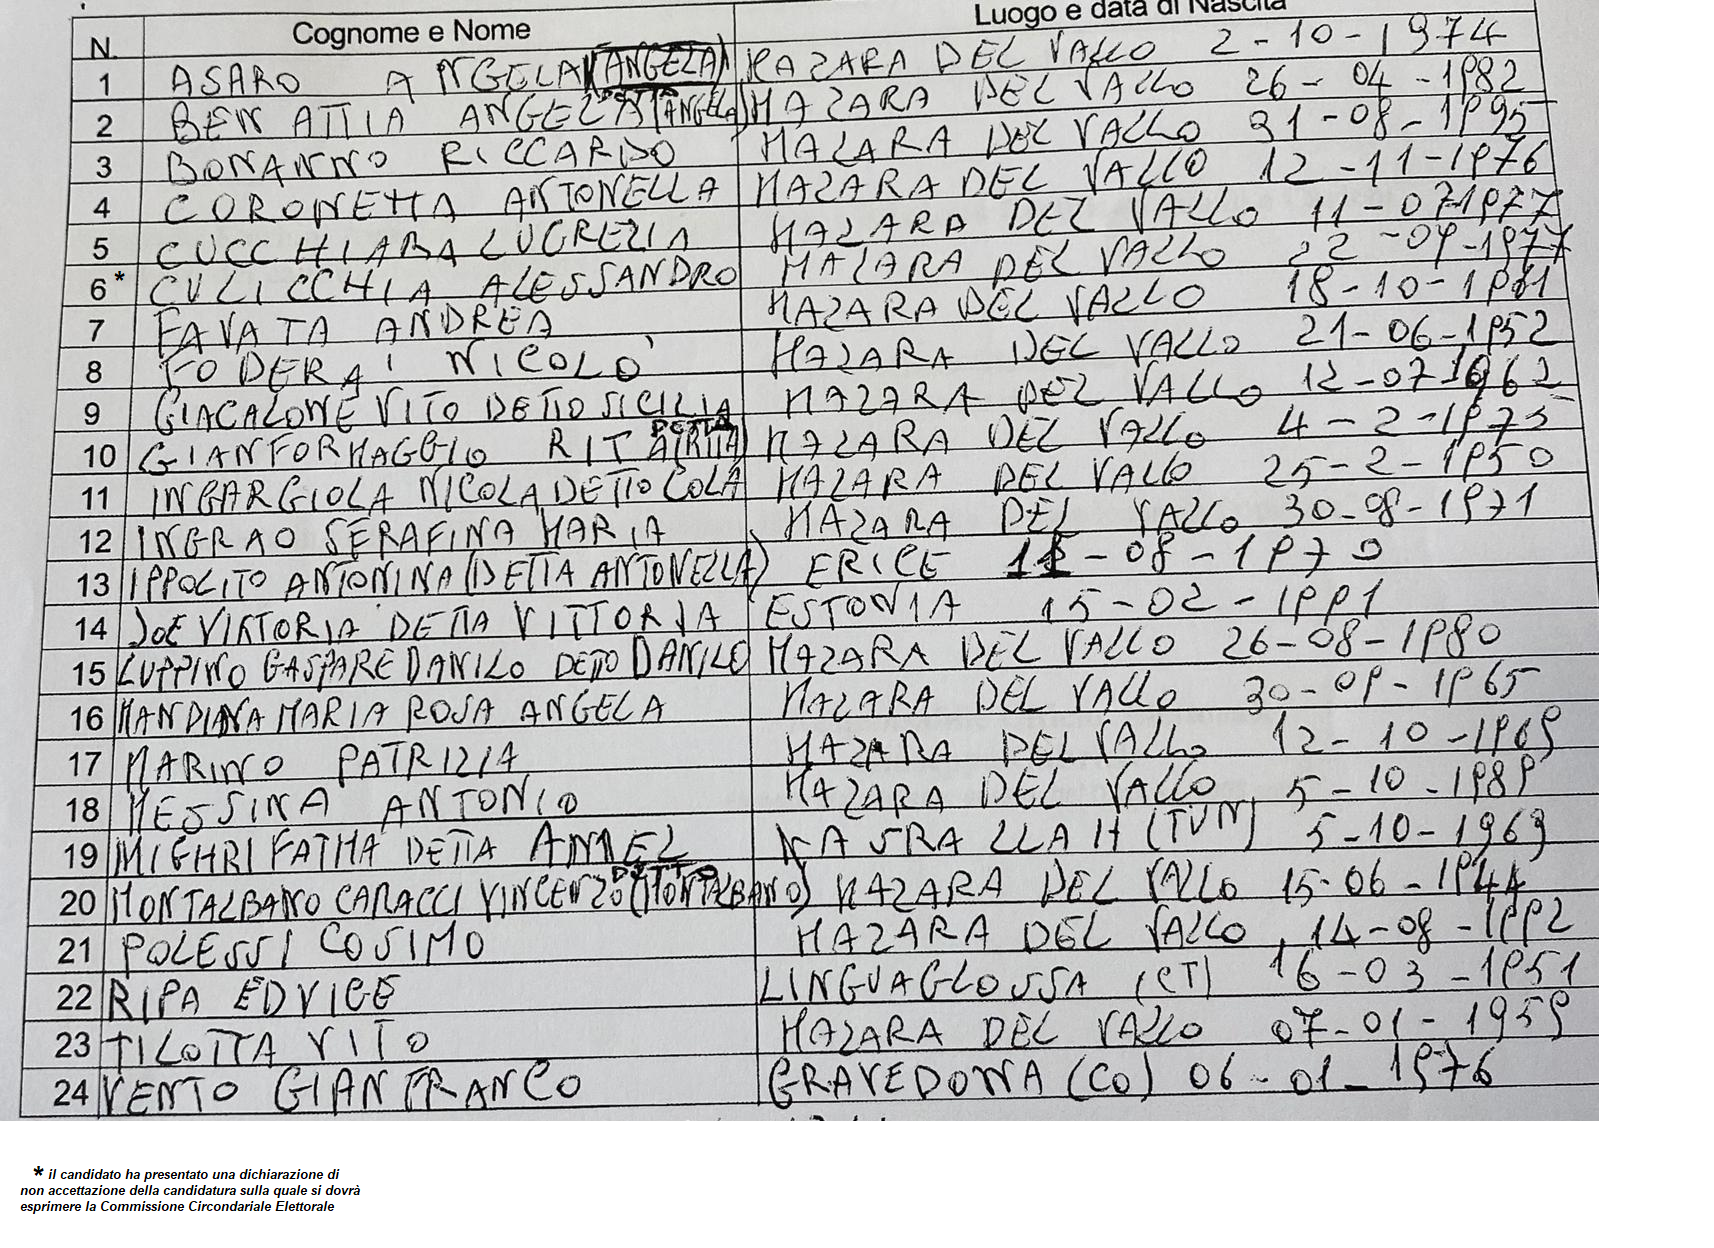 N. Cognome e Nome Luogo e data di Nascita
1 ASARO ANGELA (ANGELA) MAZARA DEL VALLO 2-10-1974
2 BEN ATTIA ANGELA (ANGELA) MAZARA DEL VALLO 26-04-1982
3 BONANNO RICCARDO MAZARA DEL VALLO 31-08-1995
4 CORONETTA ANTONELLA MAZARA DEL VALLO 12-11-1976
5 CUCCHIARA LUCREZIA MAZARA DEL VALLO 11-07-1977
6* CULICCHIA ALESSANDRO MAZARA DEL VALLO 22-09-1977
7 FAVATA ANDREA MAZARA DEL VALLO 18-10-1981
8 FODERA' NICOLO' MAZARA DEL VALLO 21-06-1952
9 GIACALONE VITO DETTO SICILIA MAZARA DEL VALLO 12-07-1962
10 GIANFORMAGGIO RITA DETTA (RITA) MAZARA DEL VALLO 4-2-1975
11 INGARGIOLA NICOLA DETTO COLA MAZARA DEL VALLO 25-2-1950
12 INGRAO SERAFINA MARIA MAZARA DEL VALLO 30-08-1971
13 IPPOLITO ANTONINA (DETTA ANTONELLA) ERICE -08-1970
14 JOE VIKTORIA DETTA VITTORIA ESTONIA 15-02-1991
15 LUPPINO GASPARE DANILO DETTO DANILO MAZARA DEL VALLO 26-08-1980
16 MANDINA MARIA ROSA ANGELA MAZARA DEL VALLO 30-09-1965
17 MARINO PATRIZIA MAZARA DEL VALLO 12-10-1969
18 MESSINA ANTONIO MAZARA DEL VALLO 5-10-1989
19 MIGHRI FATMA DETTA AMEL NASRALLAH (TUN) 5-10-1969
20 MONTALBANO CARACCI VINCENZO DETTO (MONTALBANO) MAZARA DEL VALLO 15-06-1944
21 POLESSI COSIMO MAZARA DEL VALLO 14-08-1992
22 RIPA EDVIGE LINGUAGLOSSA (CT) 16-03-1951
23 TILOTTA VITO MAZARA DEL VALLO 07-01-1959
24 VENTO GIANFRANCO GRAVEDONA (CO) 06-01-1976
* il candidato ha presentato una dichiarazione di
non accettazione della candidatura sulla quale si dovrà
esprimere la Commissione Circondariale Elettorale